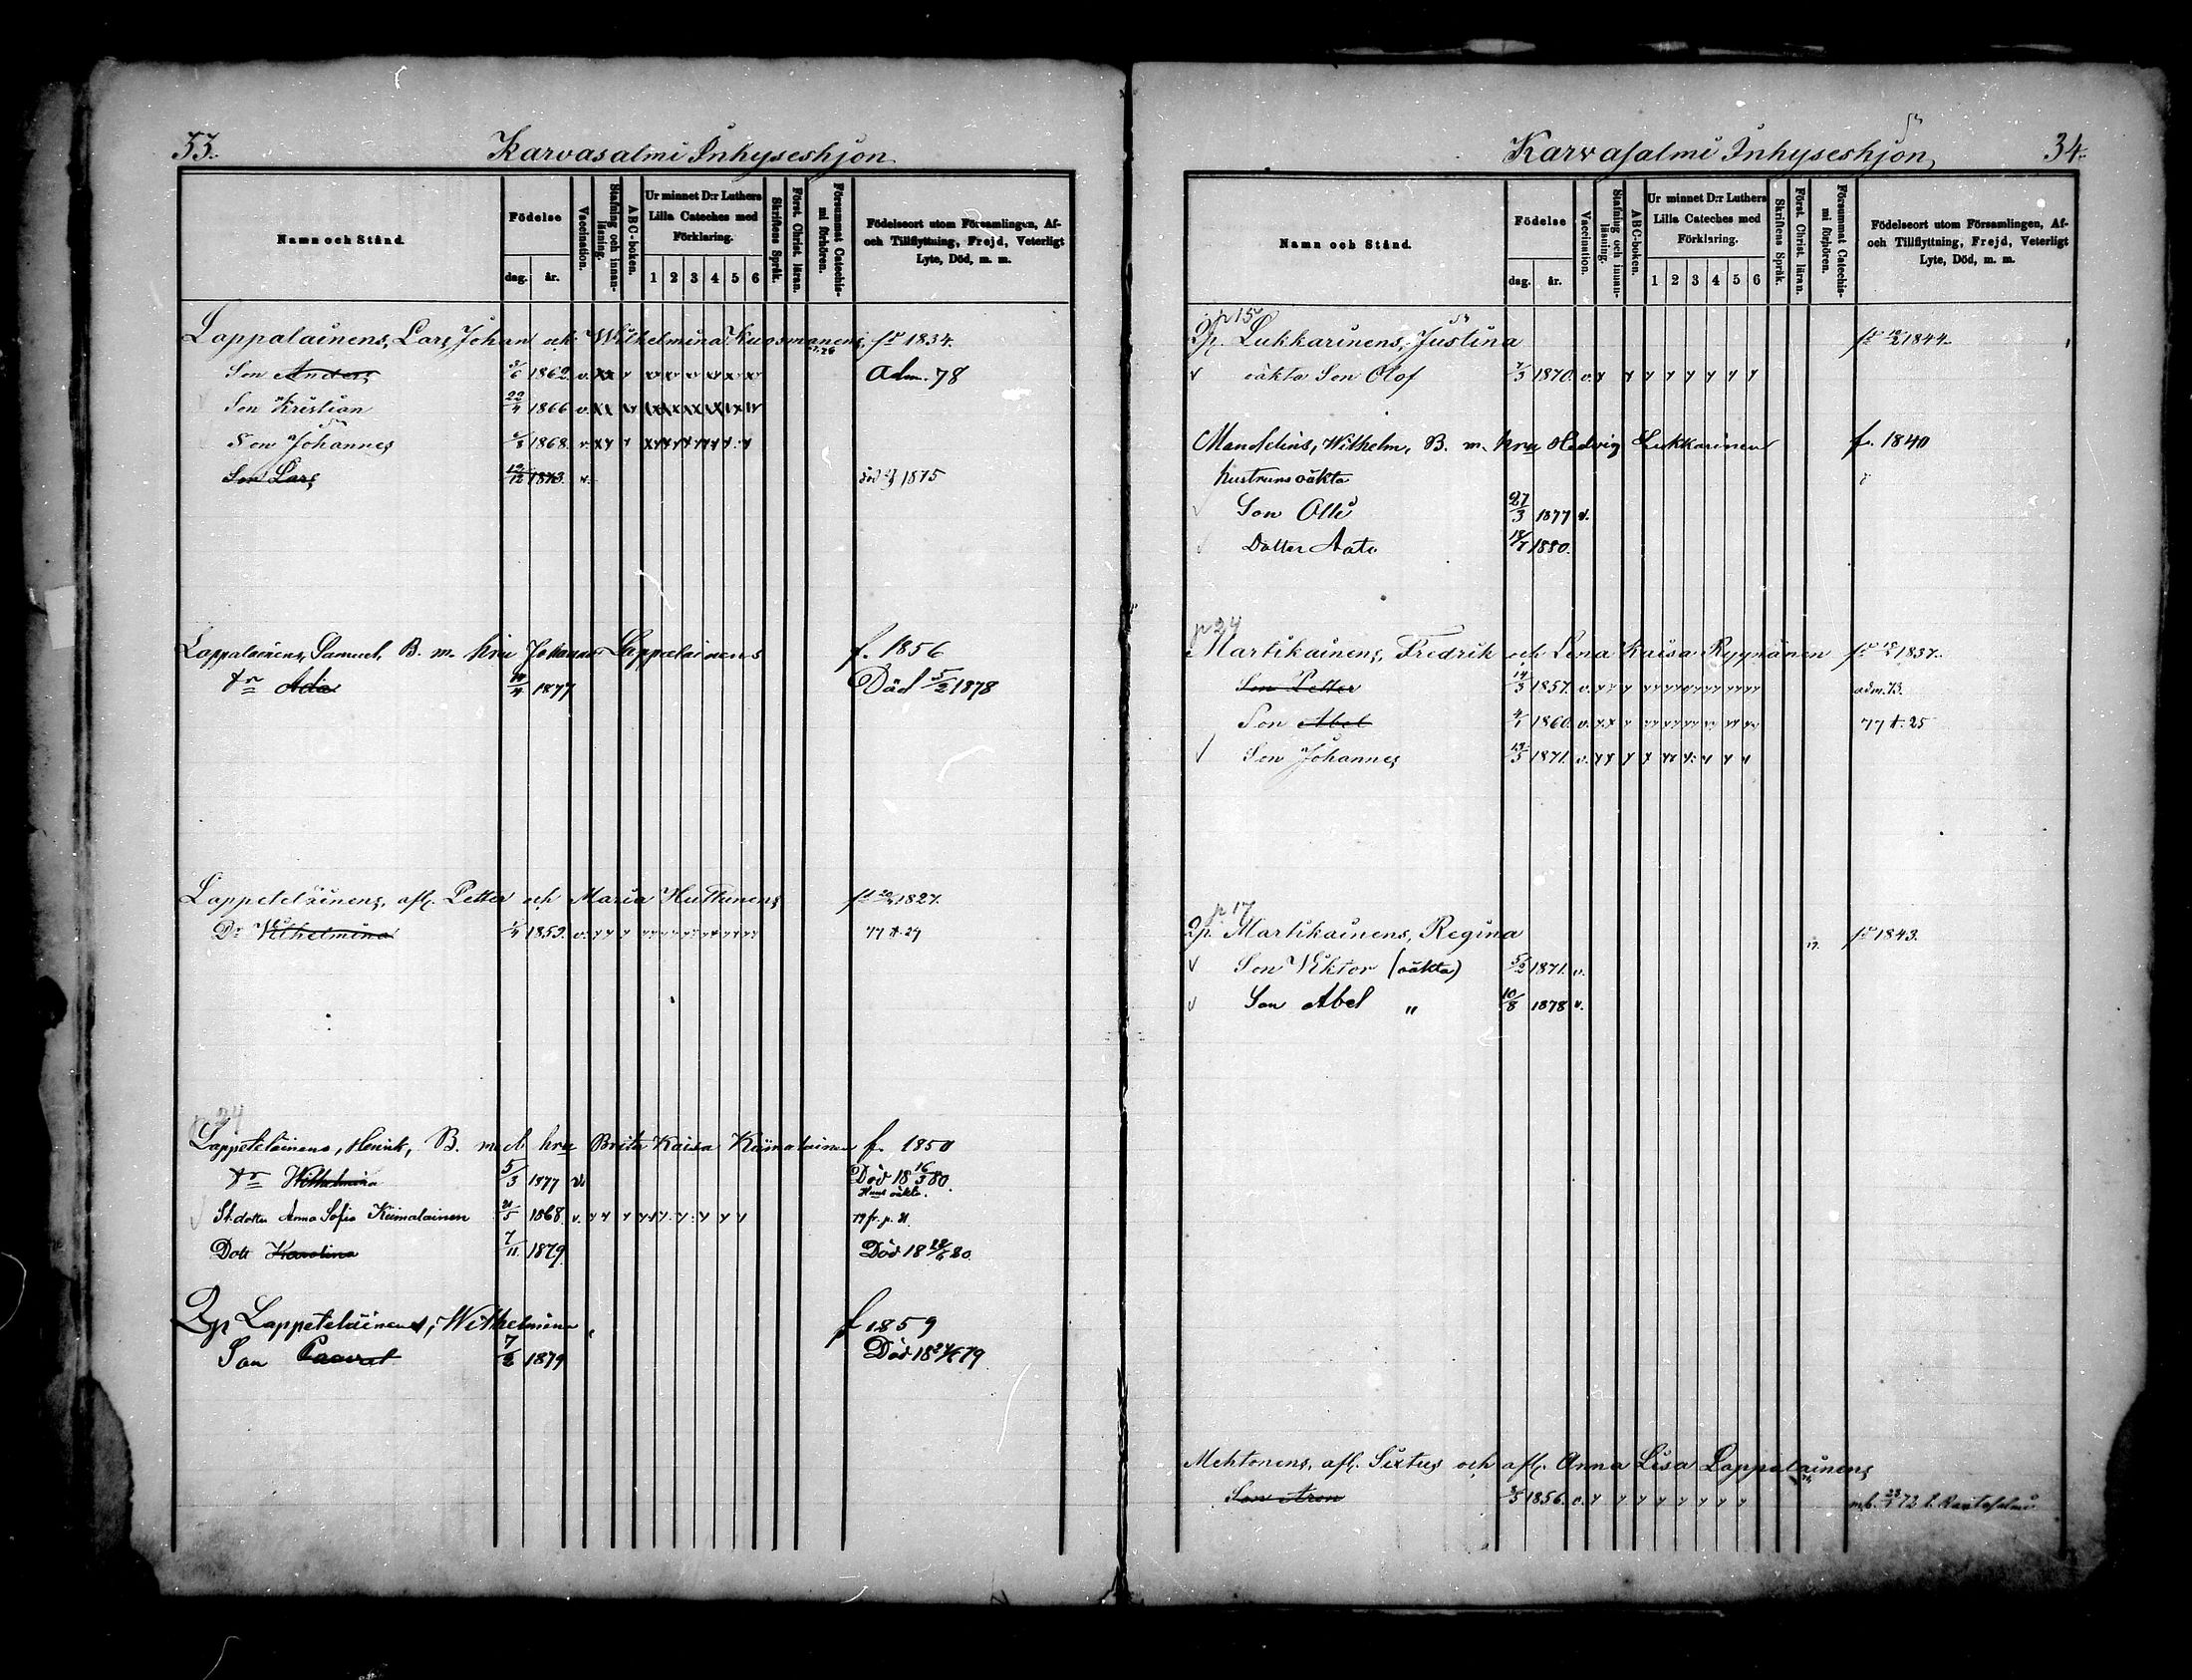 33.
Karvasalmi Inhyseshjon
Namn och Stånd.
Födelse
dag.
år.
Vaccination.
Stafning och innanläsning.
ABC-boken.
Ur minnet D:r Luthers Lilla Cateches med Förklaring.
1 2 3 4 5 6
Skriftens Språk.
Först. Christ. läran.
Försummat Catechismi förhören.
Födelseort utom Församlingen, Af- och Tillflyttning, Frejd, Veterligt Lyte, Död, m. m.
Lappalainens, Lars Johan och Wilhelmina Kuosmanens, 1834.
Son Anders 3/6 1862. v. Adm. 78
Son Kristian 22/4 1866 v.
Son Johannes 1868. v.
Son Lars 19/12 1873. v. 1875
Lappalainens, Samuel, B. m. hru Johanna Lappalainens f. 1856
Ada 1877 Död 5/2 1878
Lappeteläinens, afl. Petter och Maria Huttunens 1827.
Dr Vilhelmina 1859. v. 77 29
p 24
Lappeteläinens, Henrik, B. med hru Brita Kaisa Kiimalainen f. 1850
Wilhelmina 5/3 1877 v. Död 18 16/3 80.
St. dotter Anna Sofia Kiimalainen 1868. v. 79 fr. p. 21.
Dott Karolina 7/11 1879. Död 18 80
Qp Lappeteläinens, Wilhelmina f 1859
Son Paaval 7/2 1879 Död 18 79
Karvasalmi Inhyseshjon
34.
Namn och Stånd.
Födelse
dag.
år.
Vaccination.
Stafning och innanläsning.
ABC-boken.
Ur minnet D:r Luthers Lilla Cateches med Förklaring.
1 2 3 4 5 6
Skriftens Språk.
Först. Christ. läran.
Försummat Catechismi förhören.
Födelseort utom Församlingen, Af- och Tillflyttning, Frejd, Veterligt Lyte, Död, m. m.
p 15
Qp. Lukkarinens, Justina 1844.
oäkta Son Olof 7/3 1870. v.
Mandelins, Wilhelm, B. m. hru Hedvig Lukkarinen f. 1840
hustruns oäkta
Son Olli 27/3 1877 v.
Dotter Aato 1880.
p 24
Martikainens, Fredrik och Lena Kaisa Ryynänen 1837.
Son Petter 14/3 1857. v. adm. 73.
Son Abel 4/1 1860. v. 77 25
Son Johannes 1871. v.
p 17
Qp. Martikainens, Regina 1843.
Son Viktor (oäkta) 5/2 1871. v.
Son Abel " 10/8 1878 v.
Mehtonens, afl. Sixtus och afl. Anna Lisa Lappalainens
Son Aron 1856. v. 72 t. Rantasalmi